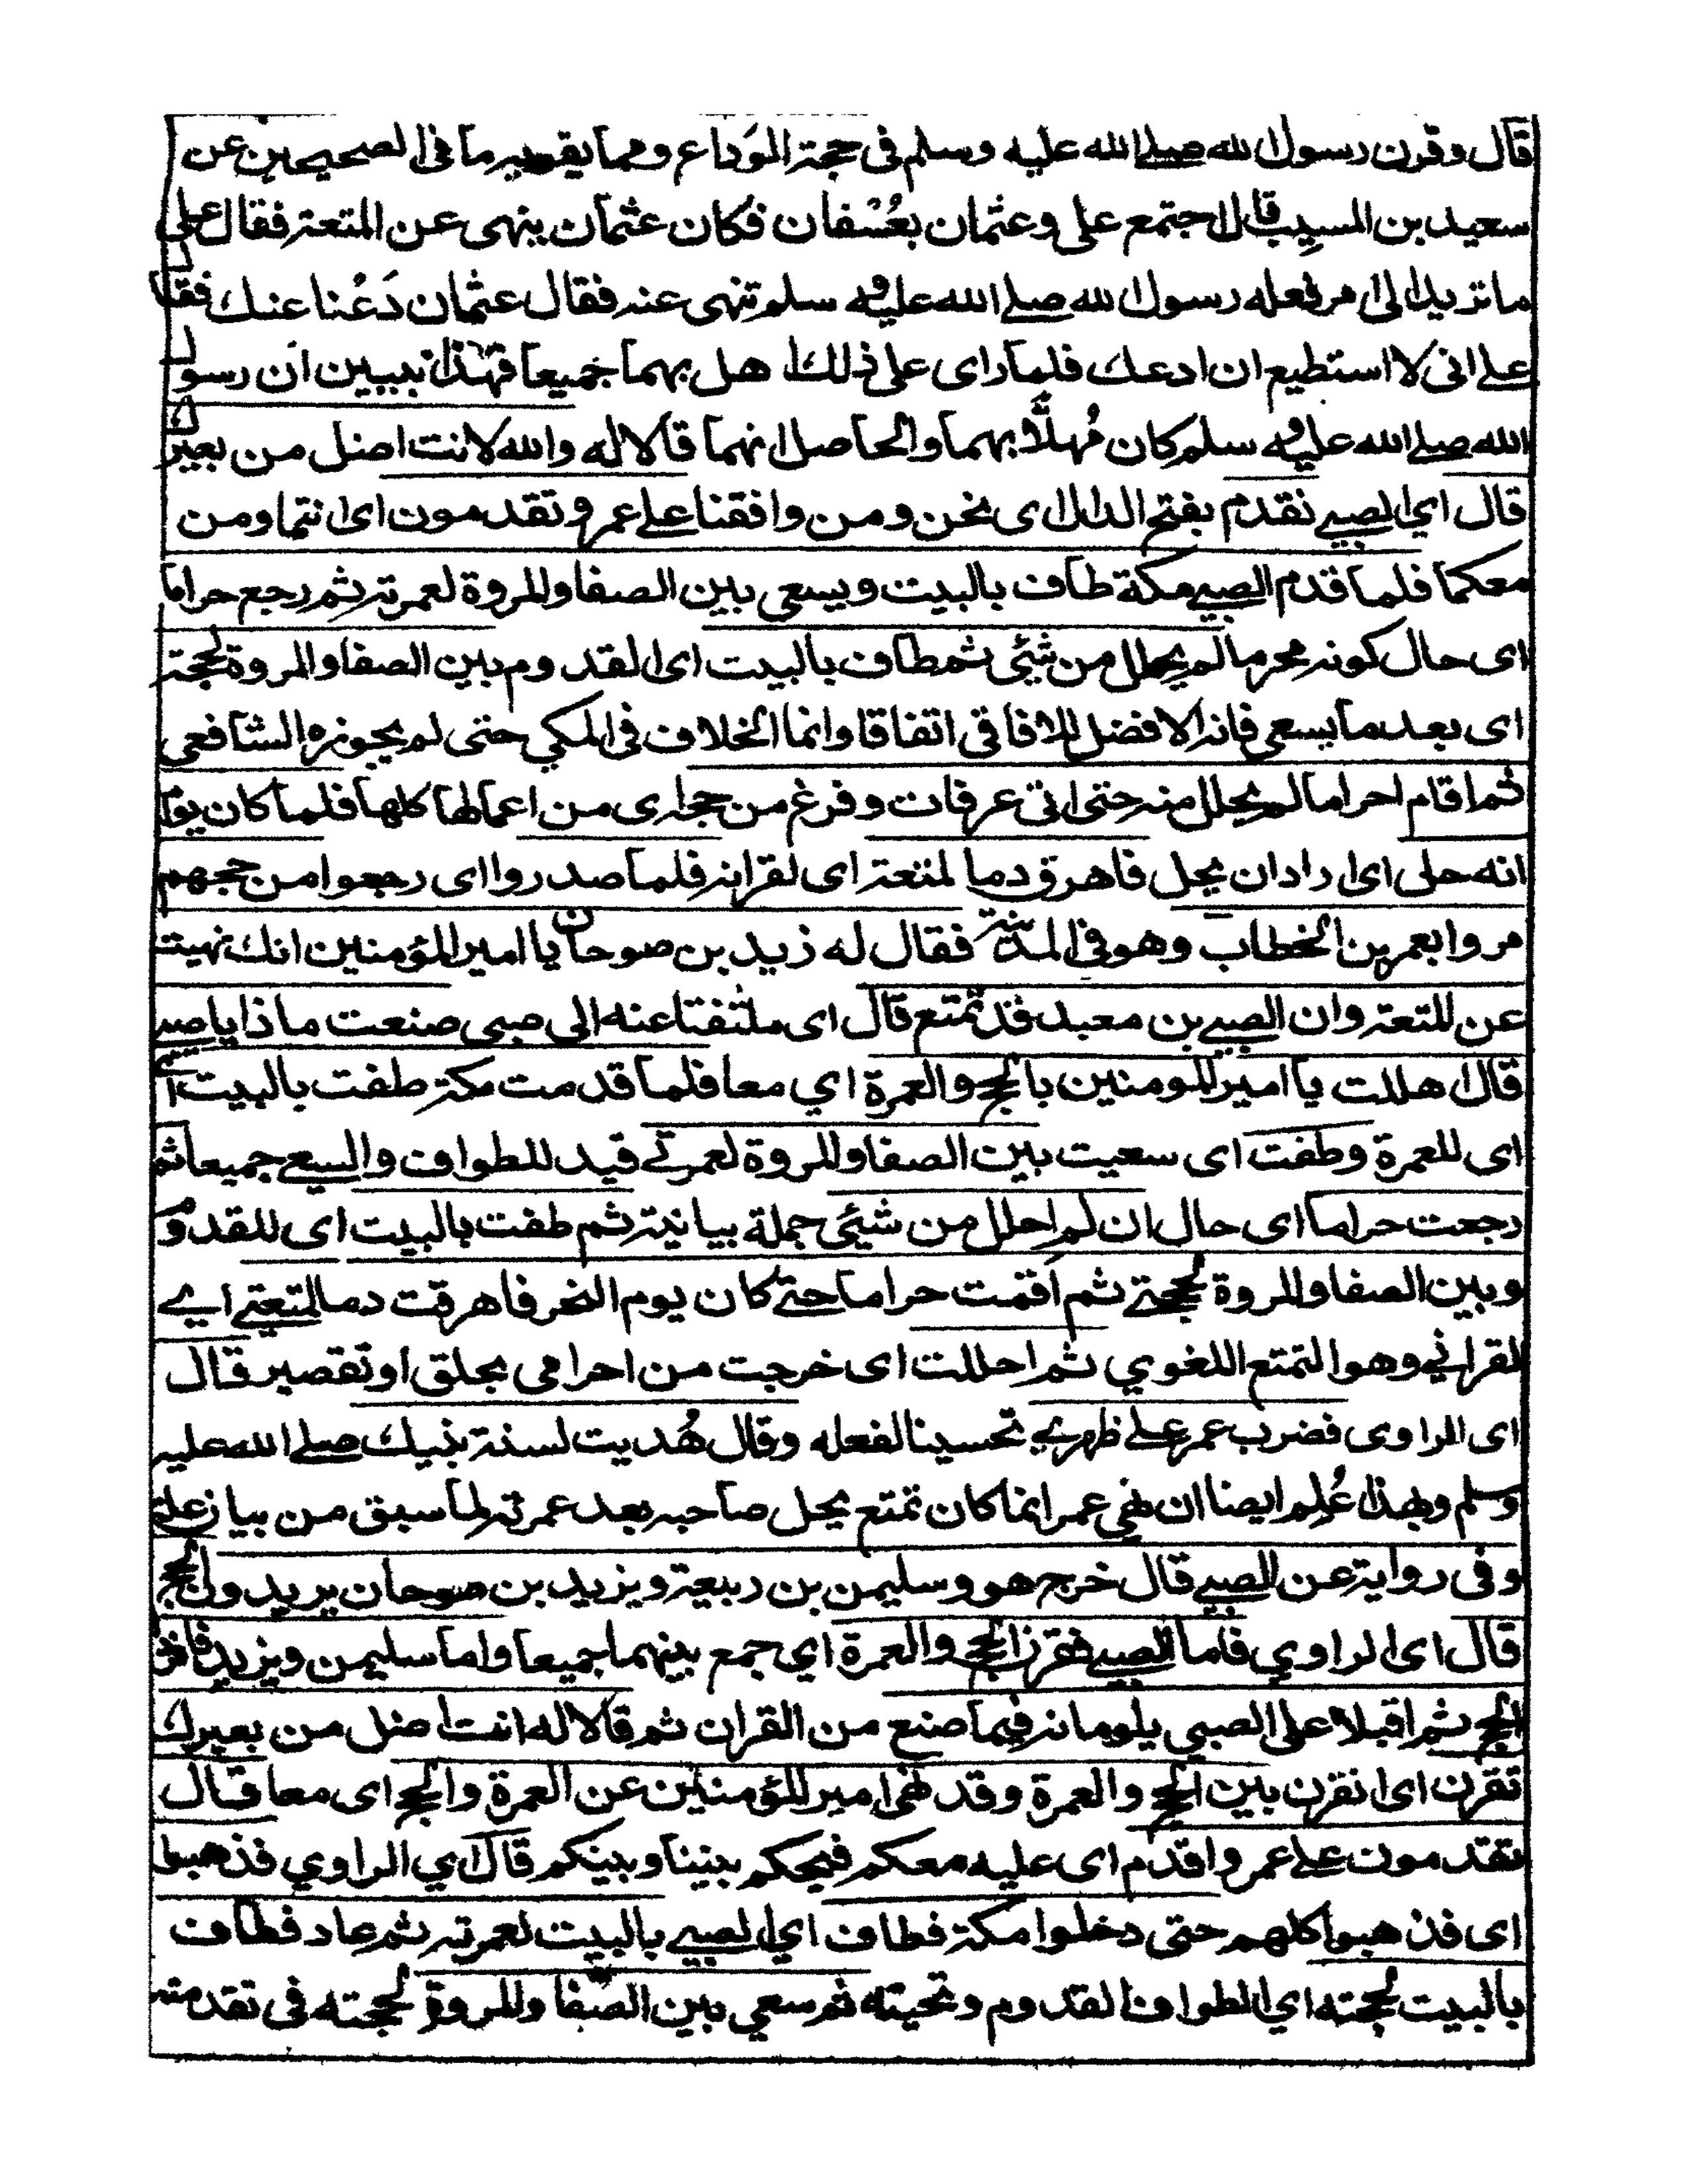 قال وقرن رسول الله صلى الله عليه وسلم فى حجة الوداع ومما يقويه ما فى الصحيحين عن
سعيد بن المسيب قال اجتمع على وعثمان بعُسْفان فكان عثمان ينهى عن المتعة فقال على
ما تريد الى امر فعله رسول الله صلى الله عليه وسلم تنهى عنه فقال عثمان دَعْنا عنك فقال
على انى لا استطيع ان ادعك فلما راى على ذلك اهل بهما جميعا فهٰذا تبيين ان رسول
الله صلى الله عليه وسلم كان مُهلًّا بهما والحاصل انهما قالا له والله لانت اضل من بعيرك
قال اي الصبي نقدم بفتح الدال اى نحن ومن وافقنا على عمر وتقدمون اى انتما ومن
معكما فلما قدم الصبي مكة طاف بالبيت ويسعى بين الصفا والمروة لعمرته ثم رجع حراما
اى حال كونه محرما لم يحلل من شئى ثم طاف بالبيت اى القدوم بين الصفا والمروة لحجته
اى بعد ما يسعى فانه الافضل للافاقى اتفاقا وانما الخلاف فى المكي حتى لم يجوزه الشافعى
ثم اقام احراما لم يحلل منه حتى اتى عرفات وفرغ من حجه اى من اعمالها كلها فلما كان يوم
انه حلى اى اراد ان يحل فاهرق دما لمتعة اى لقرانه فلما صدروا اى رجعوا من حجهم
مروا بعمر بن الخطاب وهو فى المدينة فقال له زيد بن صوحان يا امير المؤمنين انك نهيت
عن المتعة وان الصبي بن معبد قد تمتع قال اى ملتفتا عنه الى صبى صنعت ماذا يا صبي
قال اهللت يا امير المومنين بالحج والعمرة اي معا فلما قدمت مكة طفت بالبيت
اى للعمرة وطفت اى سعيت بين الصفا والمروة لعمرتى قيد للطواف والسعي جميعا ثم
رجعت حراما اى حال ان لم احلل من شئى جملة بيانية ثم طفت بالبيت اى للقدوم
وبين الصفا والمروة لحجتي ثم اقمت حراما حتى كان يوم النحر فاهرقت دما لمتعتي اي
لقراني وهو التمتع اللغوي ثم احللت اى خرجت من احرامى بحلق او تقصير قال
اى الراوى فضرب عمر على ظهره تحسينا لفعله وقال هُديت لسنة نبيك صلى الله عليه
وسلم وبهذا عُلم ايضا ان نهى عمر انما كان تمتع يحل صاحبه بعد عمرته لما سبق من بيان علته
وفى رواية عن الصبي قال خرج هو وسليمن بن ربيعة ويزيد بن صوحان يريدون الحج
قال اى الراوي فاما الصبي فقرن الحج والعمرة اي جمع بينهما جميعا واما سليمن ويزيد فافرد
الحج ثم اقبلا على الصبي يلومانه فيما صنع من القران ثم قالا له انت اضل من بعيرك
تقرن اى انقرن بين الحج والعمرة وقد نهى امير المؤمنين عن العمرة والحج اى معا قال
تقدمون على عمر واقدم اى عليه معكم فيحكم بيننا وبينكم قال اي الراوي فذهبوا
اى فذهبوا كلهم حتى دخلوا مكة فطاف اي الصبي بالبيت لعمرته ثم عاد فطاف
بالبيت لحجته اي الطواف القدوم وتحيته ثم سعي بين الصفا والمروة لحجته فى تقدمته